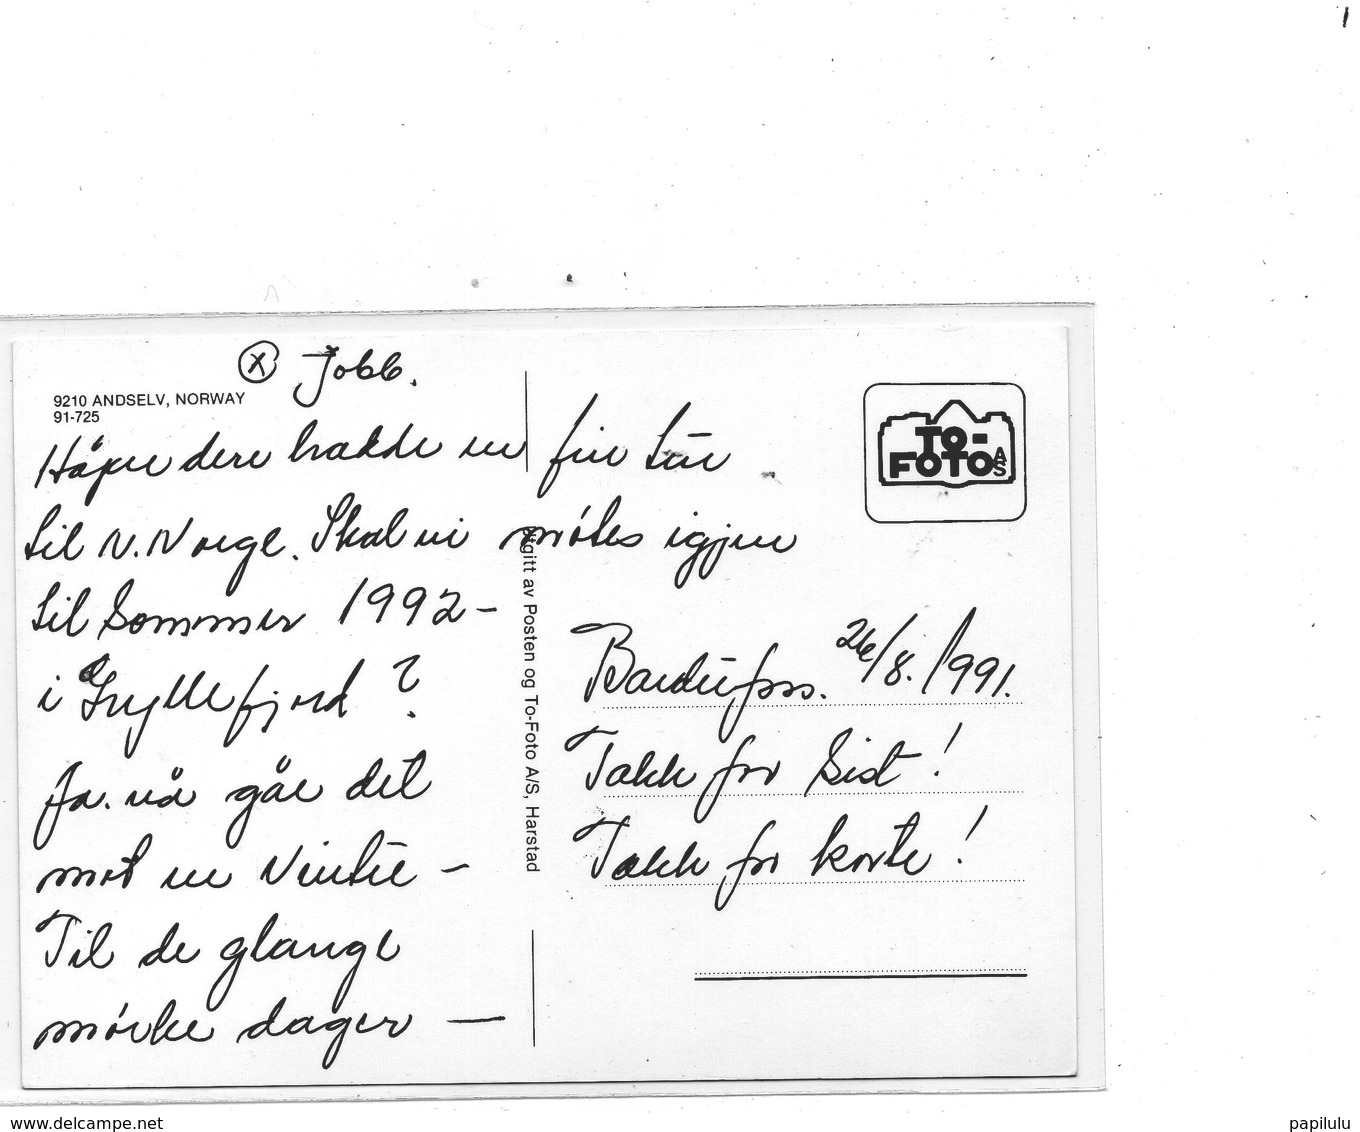 (X) Jobb.
9210 ANDSELV, NORWAY
91-725
Håper dere hadde en fin tur
til N. Norge. Skal vi møtes igjen
til Sommer 1992 –
i Gryllefjord?
Ja. nå går det
mot en Vinter –
Til de glange
mørke dager —
Utgitt av Posten og To-Foto A/S, Harstad
TO-
FOTO AS
Bardufoss. 26/8. 1991.
Takk for Sist!
Takk for kortet!
www.delcampe.net
papilulu